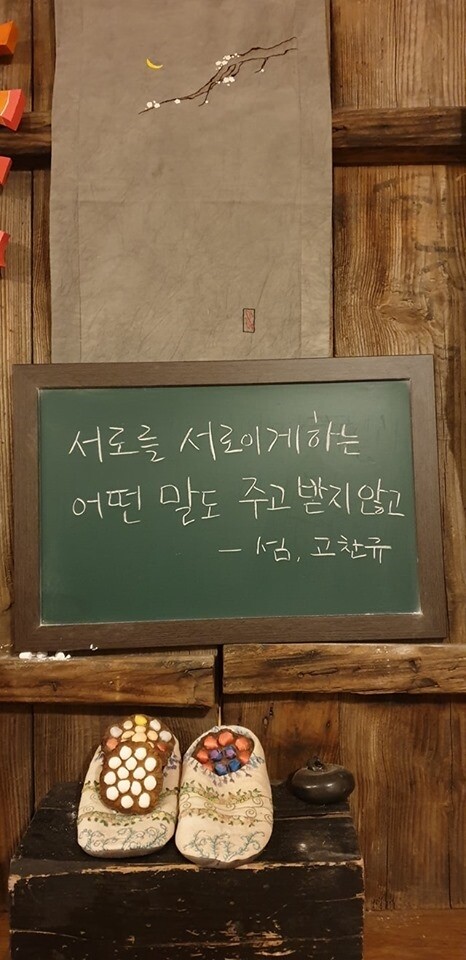 서로를 서로이게하는
어떤 말도 주고 받지않고
- 섬, 고찬규